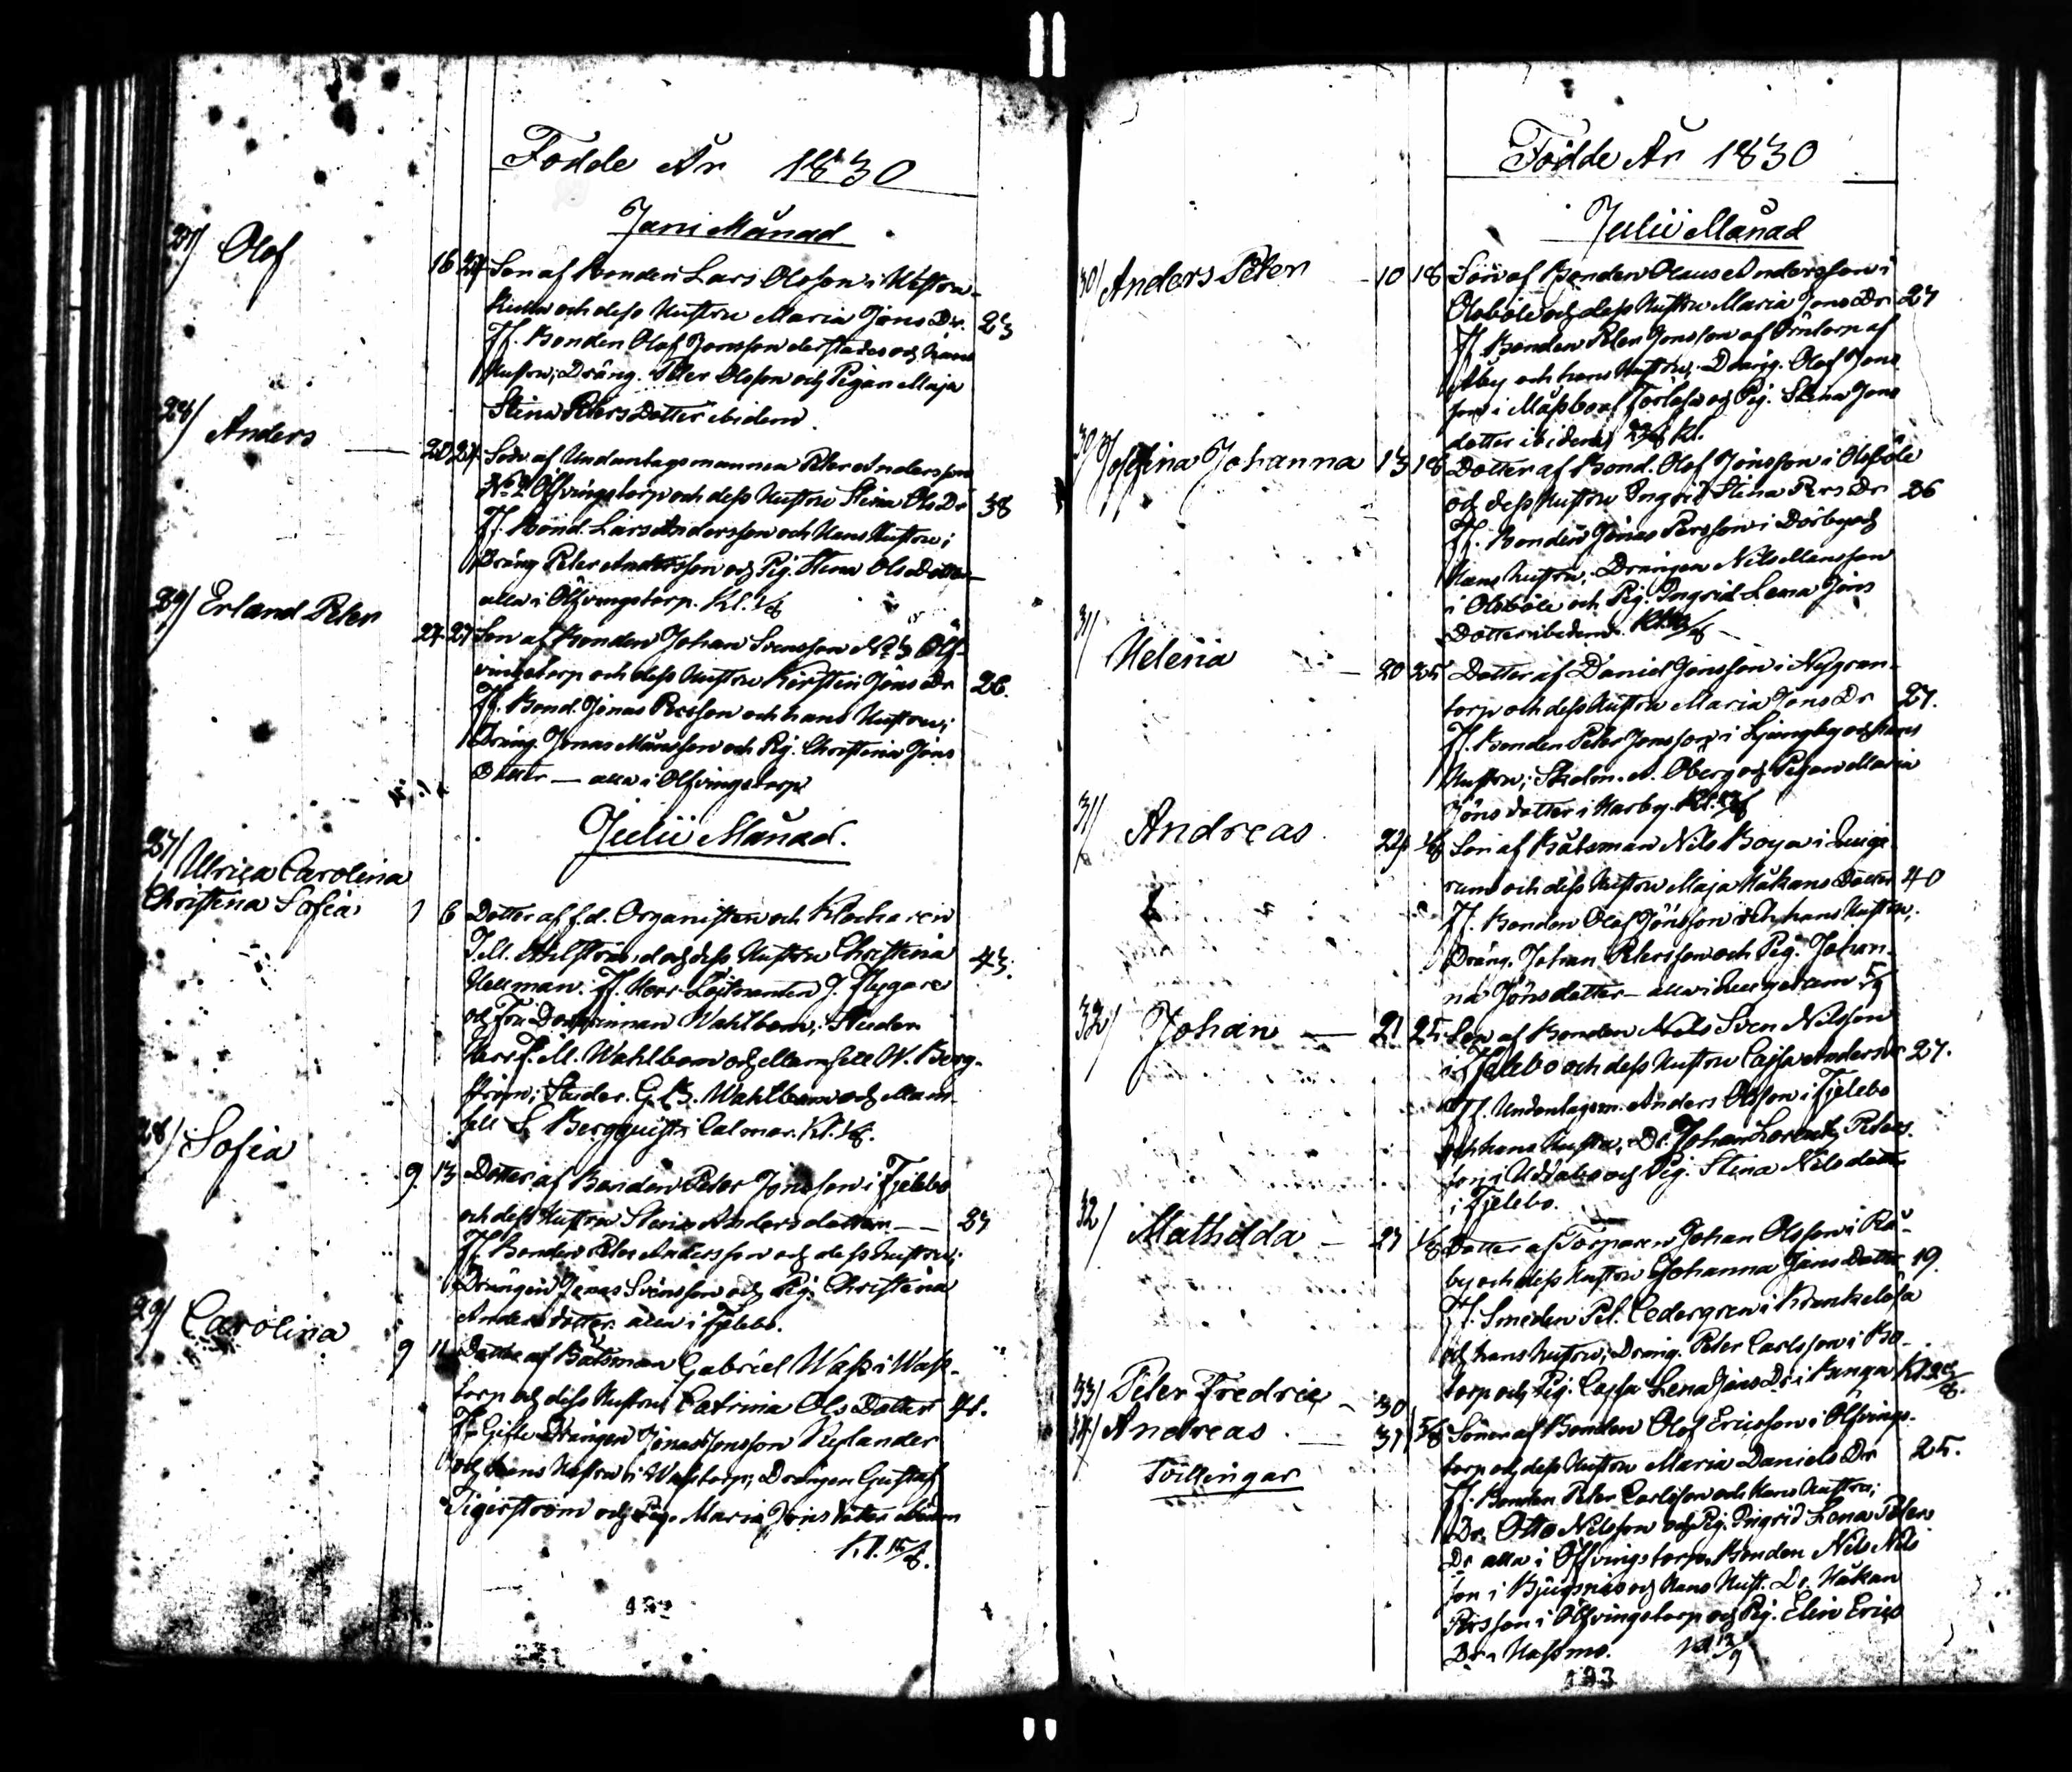 Födde År 1830
Junii Månad
27/ Olof
16 27 Son af Bonden Lars Olofson i
och dess Hustru Maria Jöns Dr. 23
Ff. Bonden Olof Jonsson derstädes och hans
Hustru; Dräng. Peter Olsson och Pigan Maja
Stina Peters Dotter ibidem.
28/ Anders
20 27 Son af Undantagsmannen Peter Andersson
No 2 Ölfvingstorp och dess Hustru Stina Ols Dr 38
Ff. Bond. Lars Andersson och Hans Hustru;
Dräng Peter Andersson och Pig. Stina Ols Dotter
alla i Ölfvingstorp. Kl. 1/8
29/ Erland Peter
24 27 Son af Bonden Johan Svensson No 3 Ölf-
vingstorp och dess Hustru Kirstin Jöns Dr 26.
Ff. Bond. Jonas Persson och hans Hustru;
Dräng Jonas Månsson och Pig. Christina Jöns
Dotter — alla i Ölfvingstorp
Julii Månad.
27/ Ulrica Carolina
Christina Sofia
1 6 Dotter af f.d. Organisten och Klockaren
J. M. Ahlström, och dess Hustru Christina 43.
Hellman. Ff. Herr Löjtnanten J. Flygare
och Fru Wahlbom; Studer.
Herr P. M. Wahlbom och Mamsell W. Berg-
ström; Studer. G. B. Wahlbom och Mam-
sell S. Bergquist i Calmar. Kl. 1/8.
28/ Sofia
9 13 Dotter af Bonden Peter Jonsson i Tjelebo
och dess Hustru Stina Andersdotter — 27
Ff. Bonden Peter Andersson och dess Hustru;
Drängen Jonas Svensson och Pig. Christina
Andersdotter alla i Tjelebo.
29/ Carolina
9 11 Dotter af Båtsman Gabriel Wass i Wass-
torp och dess Hustru Catrina Ols Dotter 41.
Ff. Gifte Drängen Jonas Jonsson Nylander
och hans Hustru i Wasstorp; Drängen Gustaf
Tigerström och Pig. Maria Jöns dotter ibidem
Kl. 15/8.
Födde År 1830
Julii Månad
30/ Anders Peter
10 18 Son af Bonden Olaus Andersson i
Olsböle och dess Hustru Maria Jons Dr 27
Ff. Bonden Peter Jonsson af af
Åby och hans Hustru; Dräng. Olof Jons
son i af Förlösa och Pig. Stina Jons
dotter ibidem Kl.
30/ Josefina Johanna
13 18 Dotter af Bond. Olof Jonsson i Olsböle
och dess Hustru Ingrid Stina Pers Dr 26
Ff. Bonden Jonas Persson i Dörby och
Hans Hustru; Drängen Nils Månsson
i Olsböle och Pig. Ingrid Lena Jöns
Dotter ibidem.
31/ Helena
20 25 Dotter af Daniel Jonsson i
torp och dess Hustru Maria Jons Dr 27.
Ff. Bonden Peter Jonsson i Ljungby och hans
Hustru; Öberg och Pigan Maria
Jönsdotter i Harby.
31/ Andreas
24 1/8 Son af Båtsman Nils Boya i
rum och dess Hustru Maja Håkans Dotter 40
Ff. Bonden Olof Jönsson och hans Hustru;
Dräng. Johan Petersson och Pig. Johan-
na Jönsdotter — alla i
32/ Johan
21 25 Son af Bonden Nils Sven Nilsson
i Tjelebo och dess Hustru Cajsa Anders Dr 27.
Ff. Undantagsm. Anders Olsson i Tjelebo
och hans Hustru; Dr. Johan Lorentz Peters-
son i och Pig. Stina Nilsdotter
i Tjelebo.
32/ Mathilda
27 1/8 Dotter af Torparen Johan Olsson i Rå-
by och dess Hustru Johanna Jöns Dotter 19.
Ff. Smeden Pet. Cedergren i Krankelösa
och hans Hustru; Dräng. Peter Carlsson i Bo-
torp och Pig. Cajsa Lena Jöns Dr i
33/ Peter Fredric 30
34/ Andreas 31
Tvillingar
5/8 Söner af Bonden Olof Ericsson i Ölfvings-
torp och dess Hustru Maria Daniels Dr 25.
Ff. Bonden Peter Carlsson och Hans Hustru;
Dr. Otto Nilsson och Pig. Ingrid Lena Peters
Dr alla i Ölfvingstorp. Bonden Nils Nils
son i och Hans Hust. Dr. Håkan
Persson i Ölfvingstorp och Pig. Elin Erics
Dr i Hassmo. Kl. 12/9
193